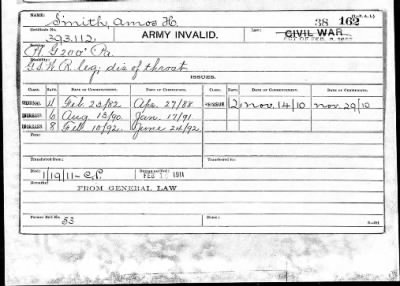 NAME: Smith, Amos H. 38 162
Certificate No. 393.112. ARMY INVALID. Law: CIVIL WAR
H. G 200" Pa.
G.S.W. R. leg; dis of throat
ISSUES.
CLASS. RATE. DATE OF COMMENCEMENT. DATE OF CERTIFICATE. CLASS. RATE. DATE OF COMMENCEMENT. DATE OF CERTIFICATE.
ORIGINAL 4 Feb 23/82 Apr. 27/88 12 Nov. 14/10 Nov. 29/10
INCREASE 6 Aug 13/90 Jan. 17/91
INCREASE 8 Feb 10/92 June 24/92
From:
Transferred from: Transferred to:
Died: 1/19/11-C.P. FEB 1911
Remarks:
FROM GENERAL LAW
Former Roll No. 53 Home: